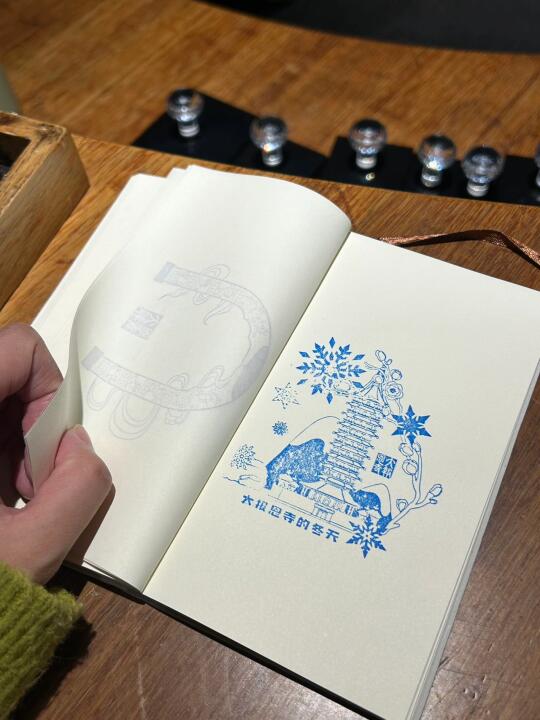 大报恩寺的冬天